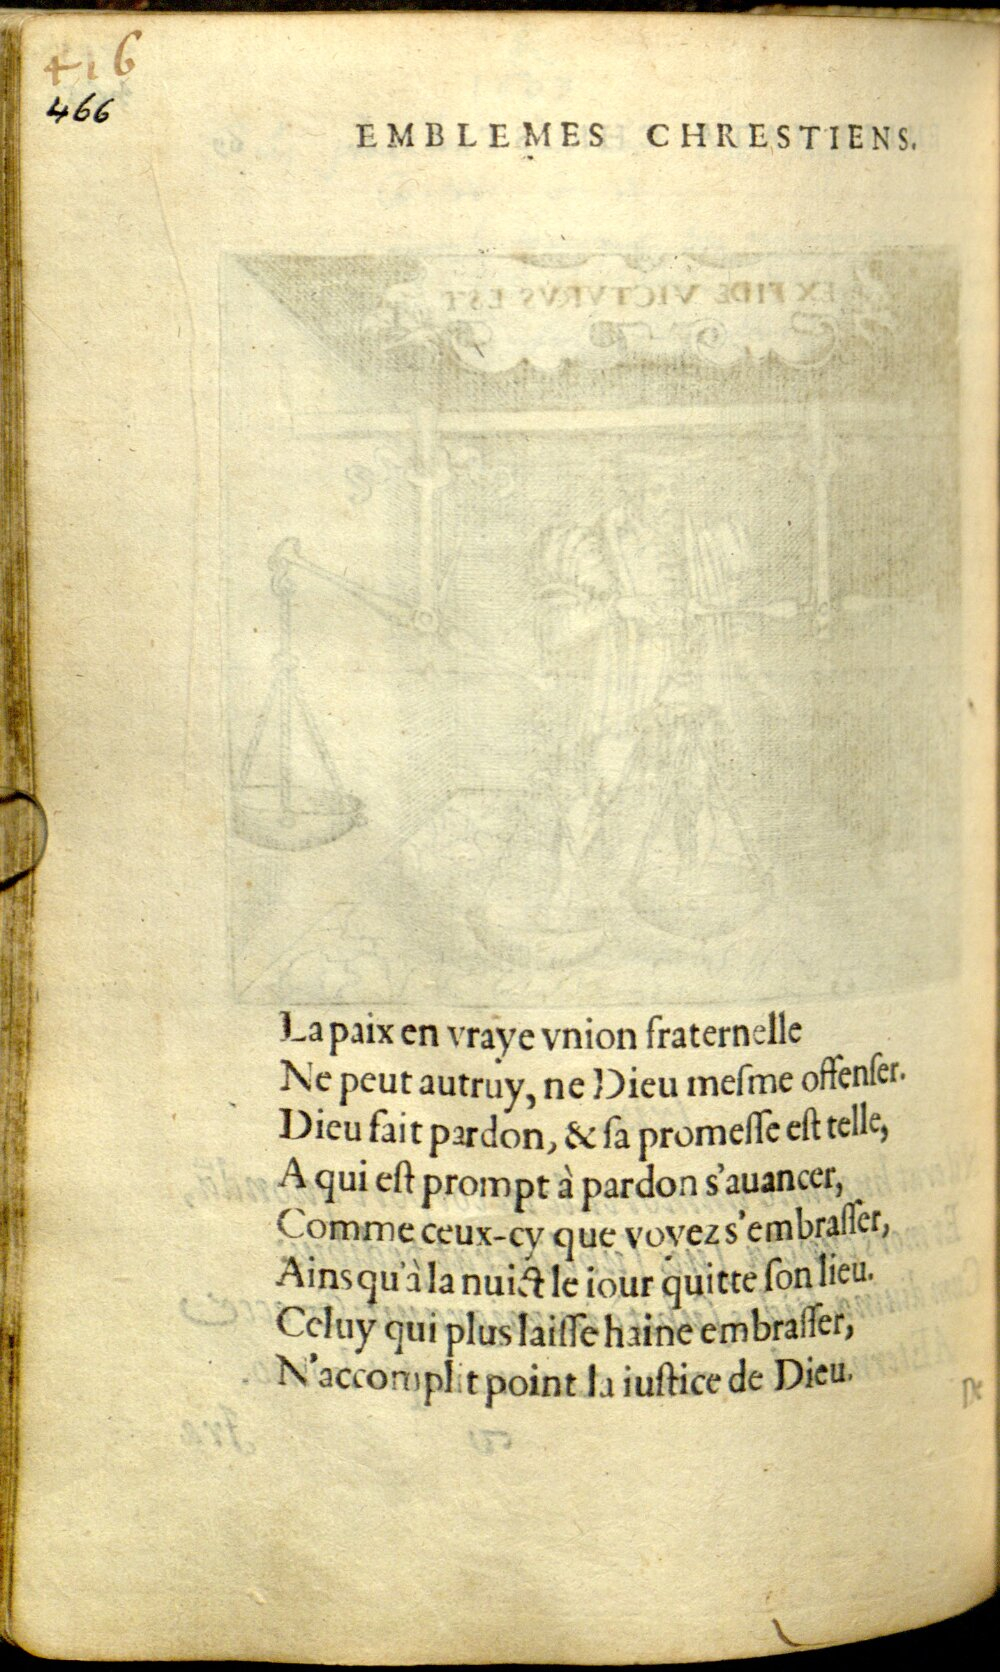 416
466
EMBLEMES CHRESTIENS.
EX FIDE VICTVRVS EST
La paix en vraye vnion fraternelle
Ne peut autruy, ne Dieu meſme offenſer.
Dieu fait pardon, & ſa promeſſe eſt telle,
A qui eſt prompt à pardon s'auancer,
Comme ceux-cy que voyez s'embraſſer,
Ains qu'à la nuict le iour quitte ſon lieu.
Celuy qui plus laiſſe haine embraſſer,
N'accomplit point la iuſtice de Dieu.
De